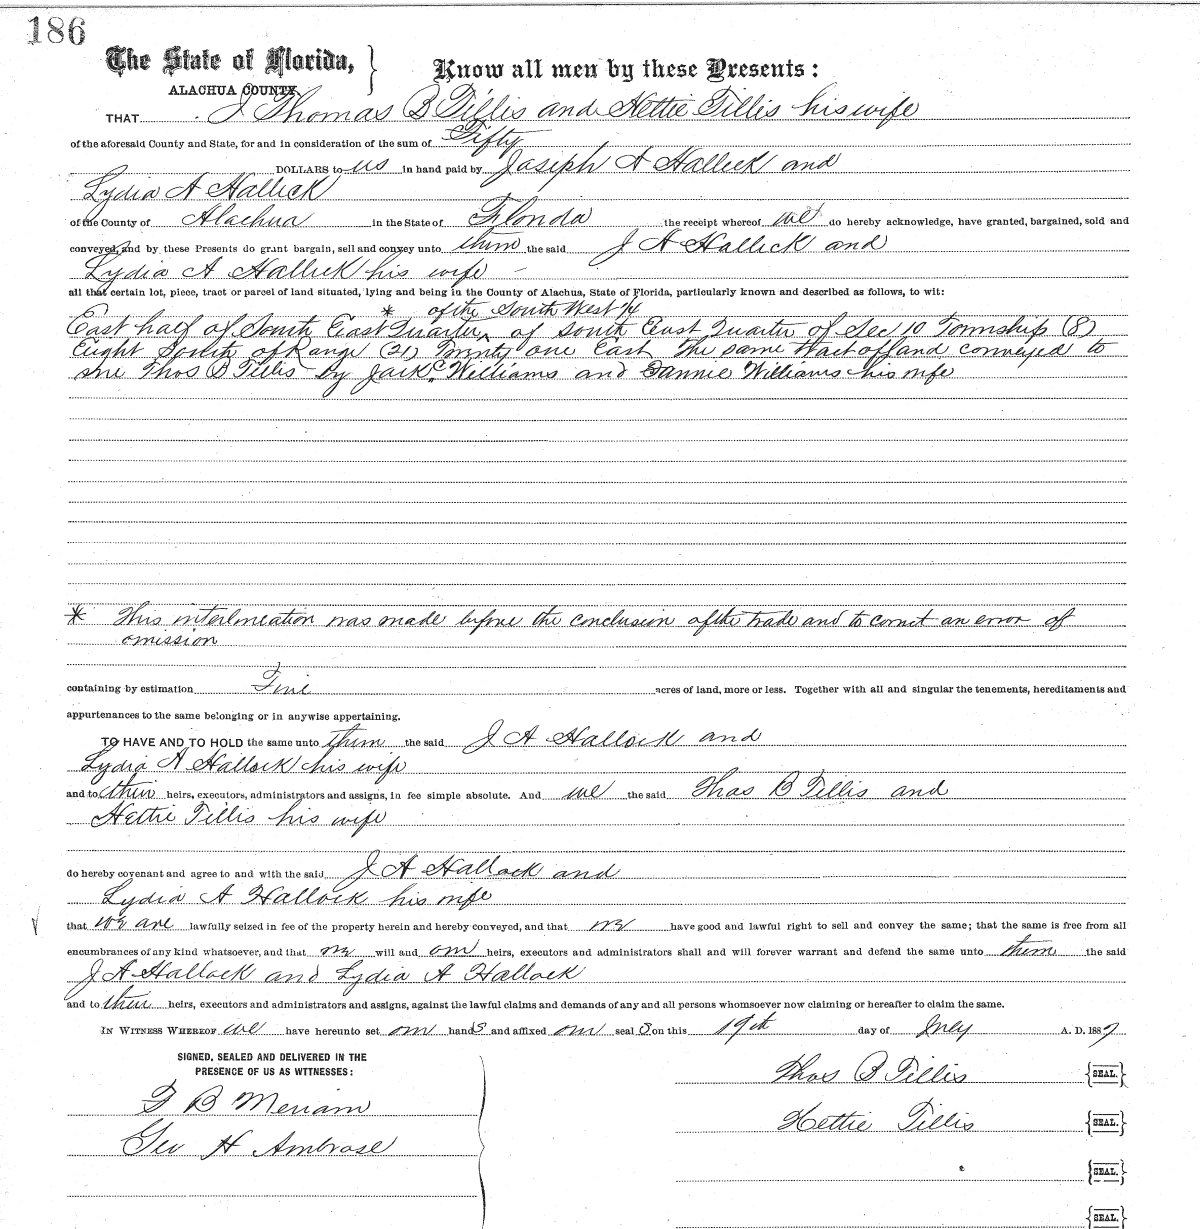 186
The State of Florida,
ALACHUA COUNTY.
Know all men by these Presents:
THAT I Thomas B Tillis and Hettie Tillis his wife
of the aforesaid County and State, for and in consideration of the sum of Fifty
DOLLARS to us in hand paid by Joseph A Hallock and
Lydia A Hallock
of the County of Alachua in the State of Florida the receipt whereof we do hereby acknowledge, have granted, bargained, sold and
conveyed, and by these Presents do grant bargain, sell and convey unto them the said J A Hallock and
Lydia A Hallock his wife
all that certain lot, piece, tract or parcel of land situated, lying and being in the County of Alachua, State of Florida, particularly known and described as follows, to wit:
* of the South West 1/4
East half of South East Quarter ^ of South East Quarter of Sec 10 Township (8)
Eight South of Range (21) Twenty one East The same tract of land conveyed to
me Thos B Tillis by Jack C Williams and Fannie Williams his wife
* This interlineation was made before the conclusion of the trade and to correct an error of
omission
containing by estimation Five acres of land, more or less. Together with all and singular the tenements, hereditaments and
appurtenances to the same belonging or in anywise appertaining.
TO HAVE AND TO HOLD the same unto them the said J A Hallock and
Lydia A Hallock his wife
and to their heirs, executors, administrators and assigns, in fee simple absolute. And we the said Thos B Tillis and
Hettie Tillis his wife
do hereby covenant and agree to and with the said J A Hallock and
Lydia A Hallock his wife
that we are lawfully seized in fee of the property herein and hereby conveyed, and that we have good and lawful right to sell and convey the same; that the same is free from all
encumbrances of any kind whatsoever, and that we will and our heirs, executors and administrators shall and will forever warrant and defend the same unto them the said
J A Hallock and Lydia A Hallock
and to their heirs, executors and administrators and assigns, against the lawful claims and demands of any and all persons whomsoever now claiming or hereafter to claim the same.
IN WITNESS WHEREOF we have hereunto set our hands and affixed our seal s on this 19th day of July A. D. 1887
SIGNED, SEALED AND DELIVERED IN THE
PRESENCE OF US AS WITNESSES:
Thos B Tillis {SEAL.}
F B Meriam
Hettie Tillis {SEAL.}
Geo H Ambrose
{SEAL.}
{SEAL.}